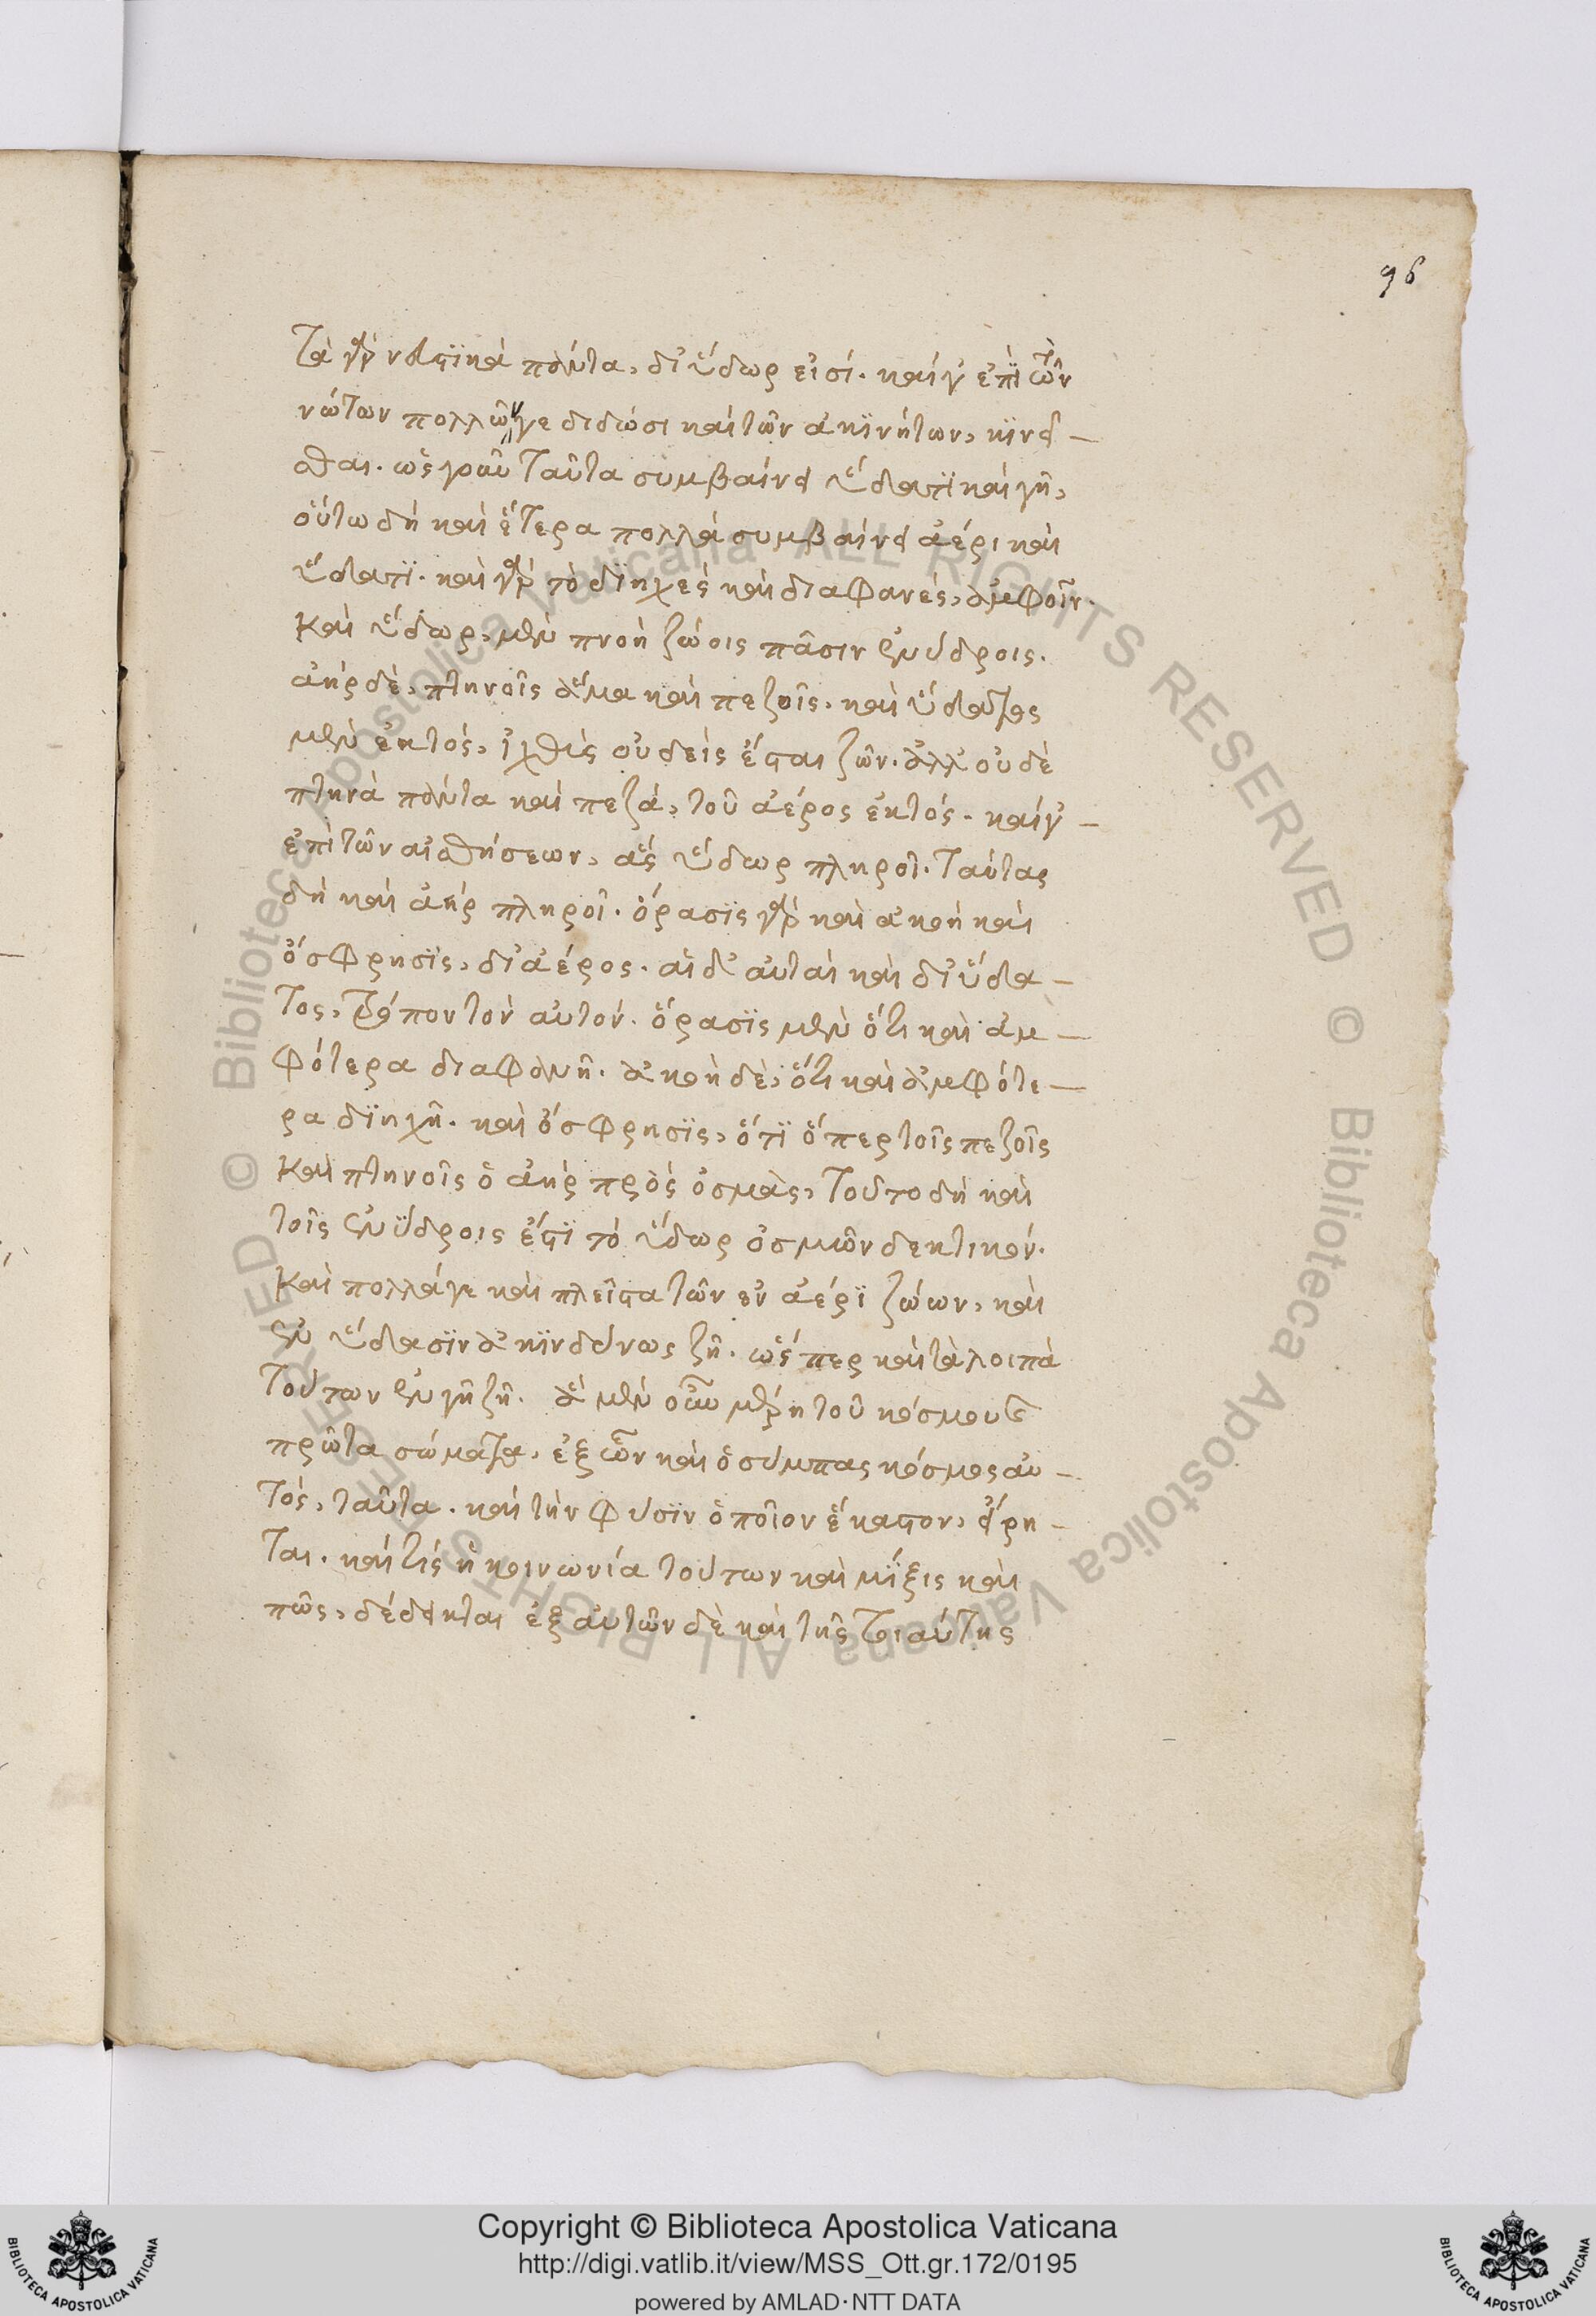 96
Τὰ γὰρ ναστικὰ πάντα, δι' ὕδωρ εἰσί. καί γ' ἐπὶ τῶν
νώτων πολλῶν γε διδώσι καὶ τῶν ἀκϊνήτων, κϊνεῖ-
σθαι. ὡς γοῦν ταῦτα συμβαίνει ὕδατϊ καὶ γῆ,
οὕτω δὴ καὶ ἕτερα πολλὰ συμβαίνει ἀέρι καὶ
ὕδατϊ. καὶ γὰρ τὸ δϊηχὲς καὶ διαφανές, ἀμφοῖν.
καὶ ὕδωρ, μὲν πνοὴ ζώοις πᾶσιν ἐνύδροις.
ἀὴρ δὲ, πτηνοῖς ἅμα καὶ πεζοῖς. καὶ ὕδατος
μὲν ἐκτός, ἰχθὺς οὐδεὶς ἔσται ζῶν. ἀλλ' οὐδὲ
πτηνὰ πάντα καὶ πεζά, τοῦ ἀέρος ἐκτός. καί γ' -
ἐπὶ τῶν αἰσθήσεων, ἃς ὕδωρ πληροῖ. ταύτας
δὴ καὶ ἀὴρ πληροῖ. ὅρασϊς γὰρ καὶ ἀκοὴ καὶ
ὄσφρησϊς, δι' ἀέρος. αἱ δ' αὐταὶ καὶ δι' ὕδα-
τος, τρόπον τὸν αὐτόν. ὅρασϊς μὲν ὅτι καὶ ἀμ-
φότερα διαφανῆ. ἀκοὴ δὲ, ὅτι καὶ ἀμφότε-
ρα δϊηχῆ. καὶ ὄσφρησϊς, ὅτϊ ὅπερ τοῖς πεζοῖς
καὶ πτηνοῖς ὁ ἀὴρ πρὸς ὀσμὰς, τοῦτο δὴ καὶ
τοῖς ἐνΰδροις ἔστϊ τὸ ὕδωρ ὀσμῶν δεκτικόν.
καὶ πολλά γε καὶ πλεῖστα τῶν ἐν ἀέρϊ ζώων, καὶ
ἐν ὕδασϊν ἀκϊνδύνως ζῆ. ὥσπερ καὶ τὰ λοιπὰ
τούτων ἐν γῆ ζῆ. ἃ μὲν οὖν μέρη τοῦ κόσμου
πρῶτα σώματα, ἐξ ὧν καὶ ὁ σύμπας κόσμος αὐ-
τὸς, ταῦτα. καὶ τὴν φύσϊν ὁποῖον ἕκαστον, εἴρη-
ται. καὶ τίς ἡ κοινωνία τούτων καὶ μΐξις καὶ
πῶς, δέδεικται ἐξ αὐτῶν δὲ καὶ τῆς τοιαύτης
© Biblioteca Apostolica Vaticana ALL RIGHTS RESERVED © Biblioteca Apostolica Vaticana ALL RIGHTS RESERVED
Copyright © Biblioteca Apostolica Vaticana
http://digi.vatlib.it/view/MSS_Ott.gr.172/0195
powered by AMLAD·NTT DATA
BIBLIOTECA APOSTOLICA VATICANA
BIBLIOTECA APOSTOLICA VATICANA